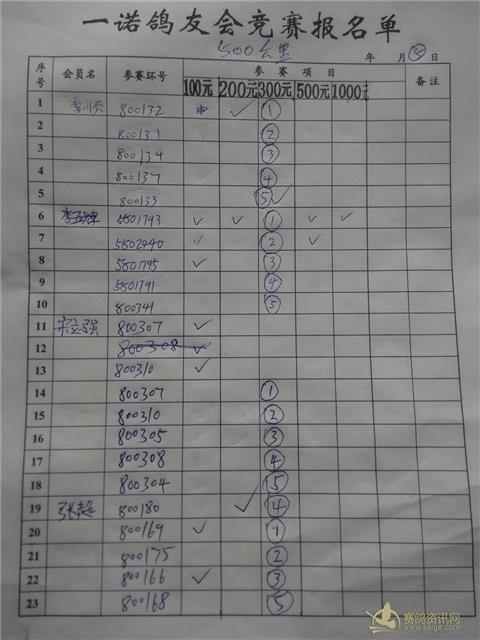 一诺鸽友会竞赛报名单
500公里
年 月 日
序号 会员名 参赛环号 参赛项目 备注
100元 200元 300元 500元 1000元
1 800132 ✓ ①
2 800131 ②
3 800134 ③
4 800137 ④
5 800133 ⑤ ✓
6 5801793 ✓ ✓ ① ✓ ✓
7 5802440 ✓ ② ✓
8 5801795 ✓ ③
9 5801791 ④
10 800341 ⑤
11 宋立强 800307 ✓
12 800308 ✓
13 800310 ✓
14 800307 ①
15 800310 ②
16 800305 ③
17 800308 ④
18 800304 ⑤
19 张超 800180 ✓ ④
20 800169 ✓ ①
21 800175 ②
22 800166 ✓ ③
23 800168 ⑤
赛鸽资讯网
www.saige.com